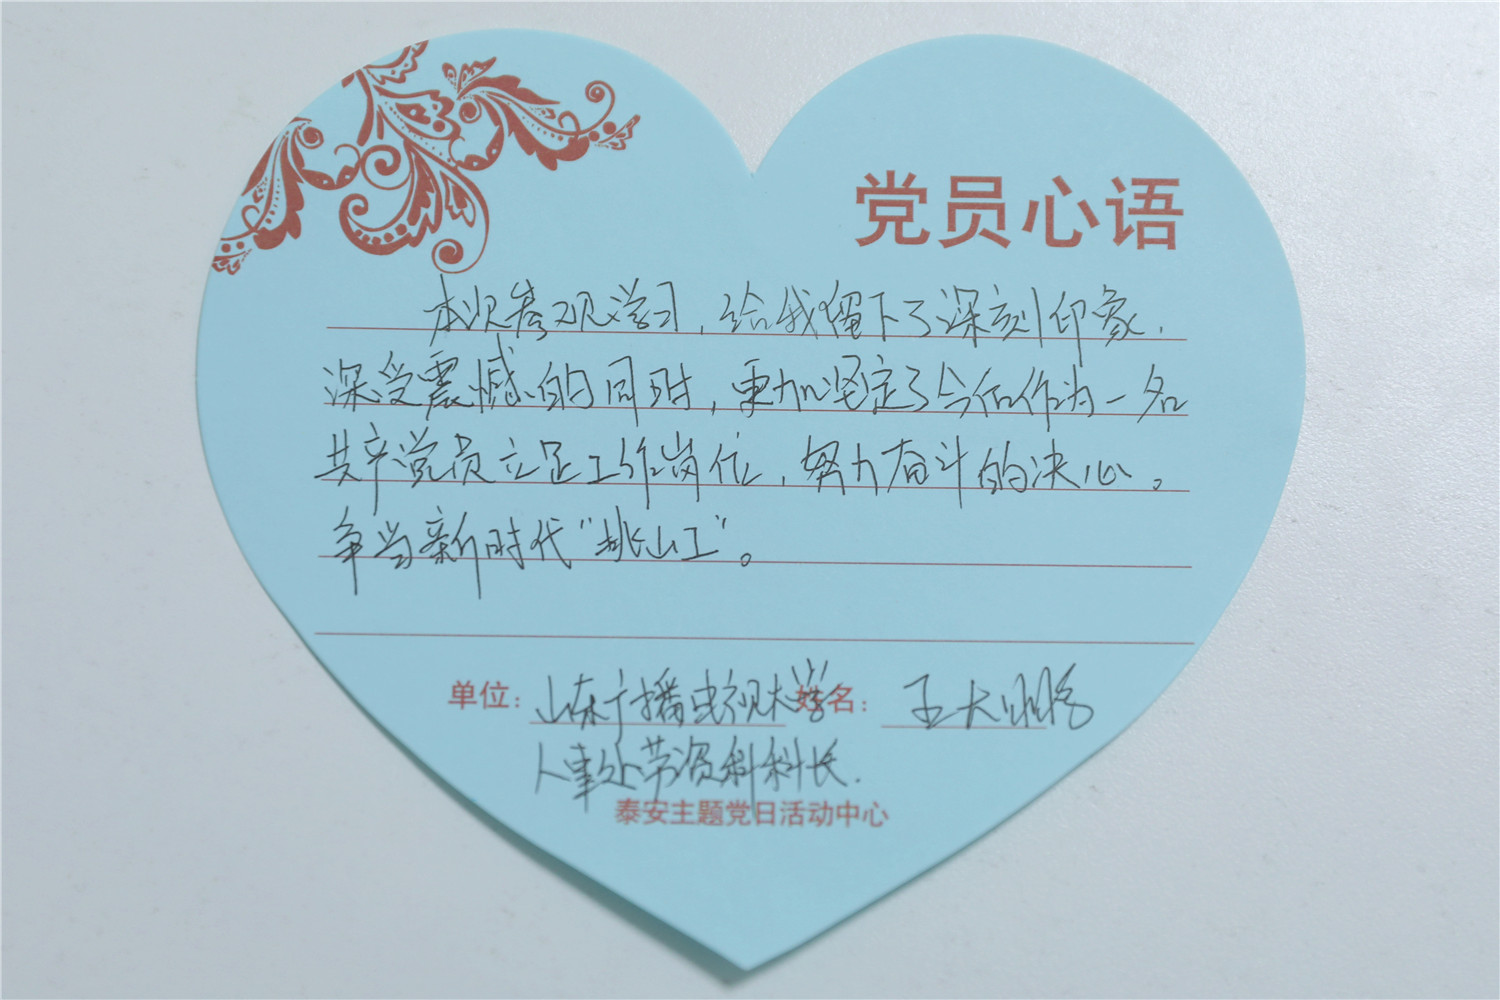 党员心语
本次参观学习，给我留下了深刻印象.
深受震撼的同时，更加坚定了今后作为一名
共产党员立足工作岗位，努力奋斗的决心。
争当新时代“挑山工”。
单位：山东广播电视大学 姓名：王大鹏
人事处劳资科科长.
泰安主题党日活动中心